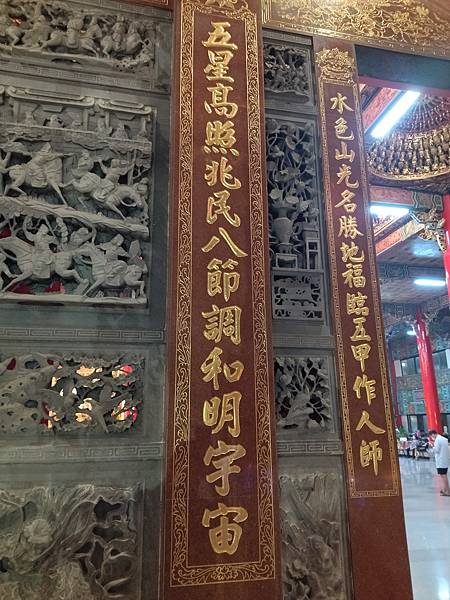 水色山光名勝地福臨五甲作人師
五星高照兆民八節調和明宇宙